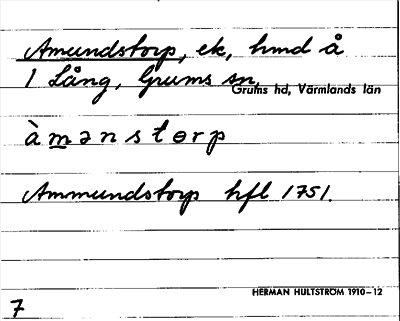 Amundstorp, ek, hmd å
1 Lång, Grums sn,
Grums hd, Värmlands län
à m ə n s t ɵ r p
Ammundstorp hfl 1751.
HERMAN HULTSTRÖM 1910–12
7